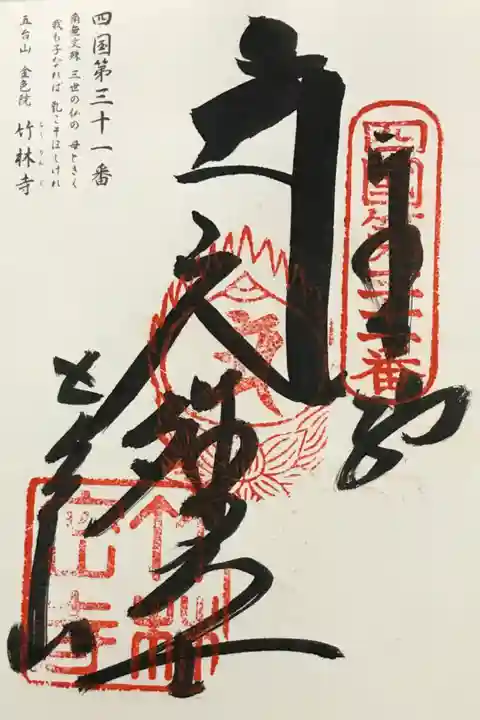 四国第三十一番
南無文殊 三世の仏の 母ときく
我も子なれば 乳こそほしけれ
五台山 金色院 竹林寺
ちくりんじ
四國第三十一番
文殊堂
竹林寺